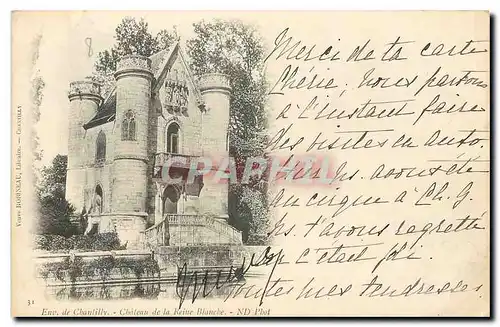 Merci de ta carte
Chérie, nous partons
à l'instant faire
des visites en auto.
avons été
au cirque à Ch.
t'avons regretté
c'était
toutes mes tendresses
CPARAMA
Veuve ROBINEAU, Libraire. - CHANTILLY
8
31
Env. de Chantilly. - Château de la Reine Blanche. - ND Phot